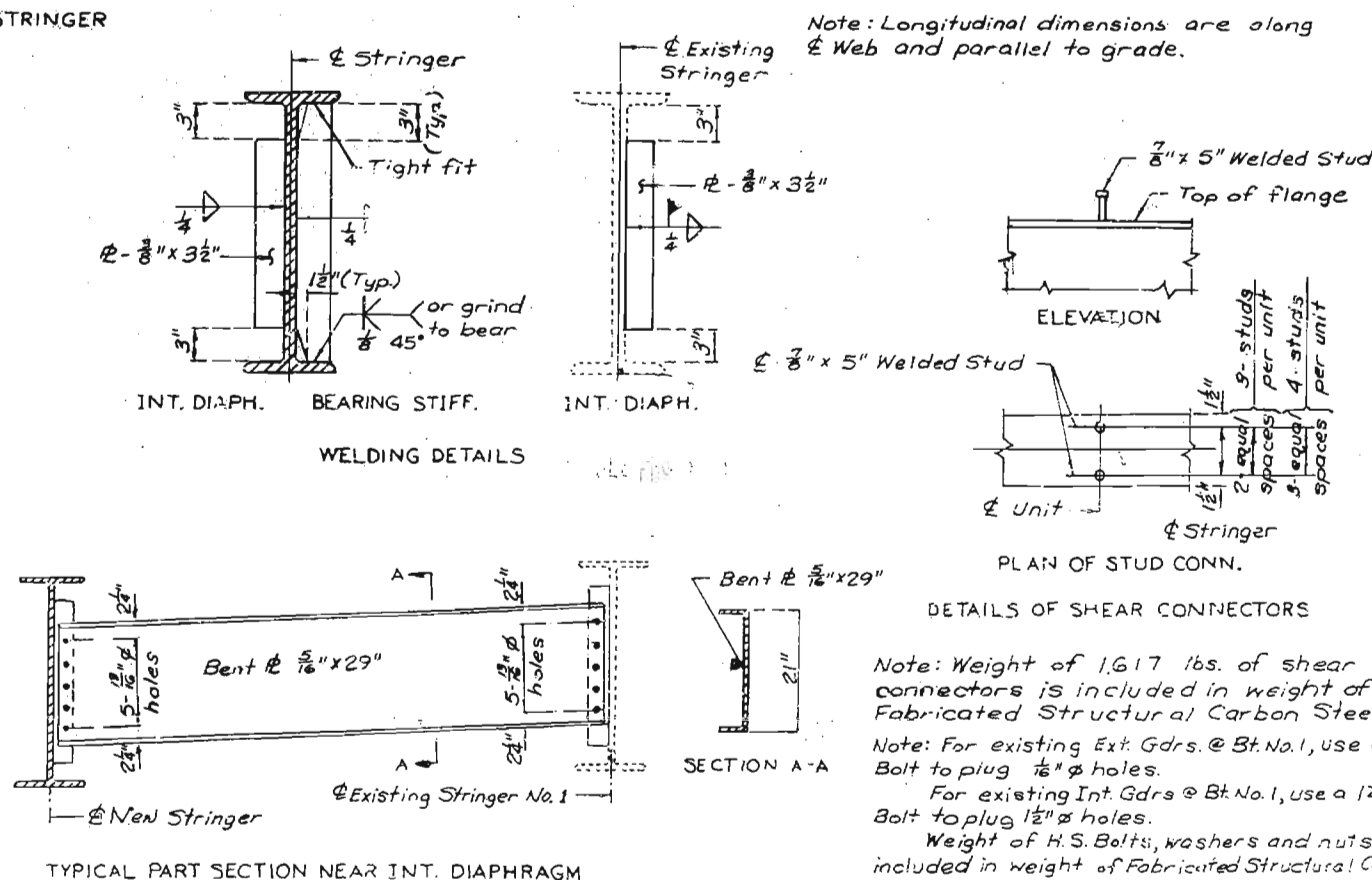 STRINGER
Note: Longitudinal dimensions are along
℄ Web and parallel to grade.
℄ Stringer
3"
3"
(Typ.)
Tight fit
1/4
1/4
℄ - 3/8" x 3 1/2"
1 1/2" (Typ.)
3"
1/8 45°
or grind
to bear
INT. DIAPH.
BEARING STIFF.
℄ Existing
Stringer
3"
℄ - 3/8" x 3 1/2"
1/4
3"
INT. DIAPH.
WELDING DETAILS
7/8" x 5" Welded Stud
Top of flange
ELEVATION
℄ 7/8" x 5" Welded Stud
1 1/2"
1 1/2"
3- studs
per unit
2- equal
spaces
4- studs
per unit
3- equal
spaces
℄ Unit
℄ Stringer
PLAN OF STUD CONN.
DETAILS OF SHEAR CONNECTORS
2 1/4"
5- 13/16" ø
holes
2 1/4"
Bent ℄ 5/16" x 29"
A
A
2 1/4"
5- 13/16" ø
holes
2 1/4"
℄ New Stringer
℄ Existing Stringer No. 1
TYPICAL PART SECTION NEAR INT. DIAPHRAGM
Bent ℄ 5/16" x 29"
21"
SECTION A-A
Note: Weight of 1,617 lbs. of shear
connectors is included in weight of
Fabricated Structural Carbon Stee
Note: For existing Ext. Gdrs. @ Bt. No. 1, use
Bolt to plug /16" ø holes.
For existing Int. Gdrs @ Bt. No. 1, use a
Bolt to plug 1 1/2" ø holes.
Weight of H.S. Bolts, washers and nuts
included in weight of Fabricated Structural C